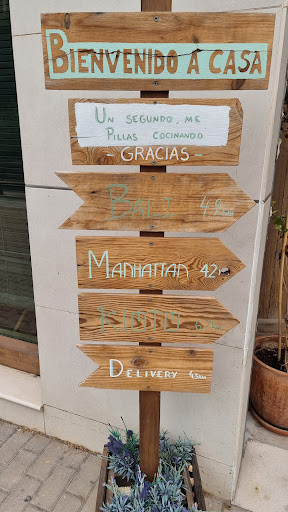 BIENVENIDO A CASA
UN SEGUNDO, ME
PILLAS COCINANDO
- GRACIAS -
BALI
MANHATTAN 42
DELIVERY 43KM